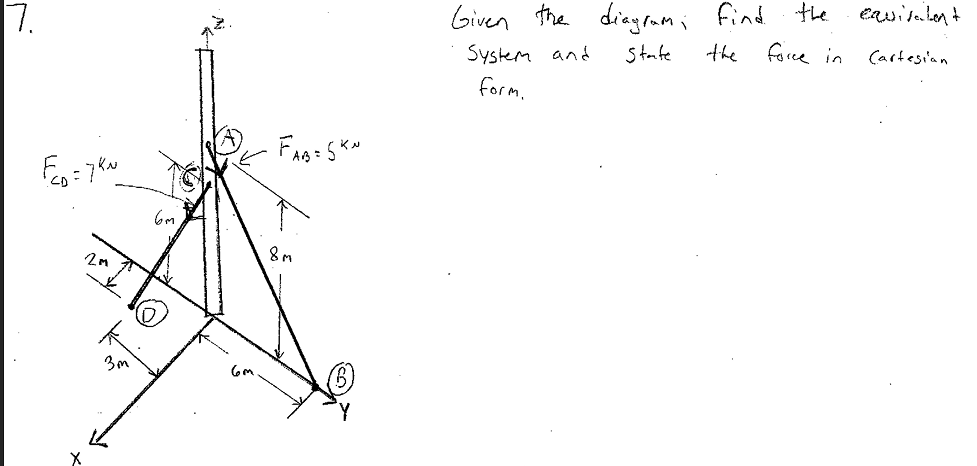 7.
Given the diagram, find the equivalent
system and state the force in Cartesian
form.
Z
A
F_AB = 5 KN
C
F_CD = 7 KN
6m
8m
2m
D
3m
6m
B
Y
X